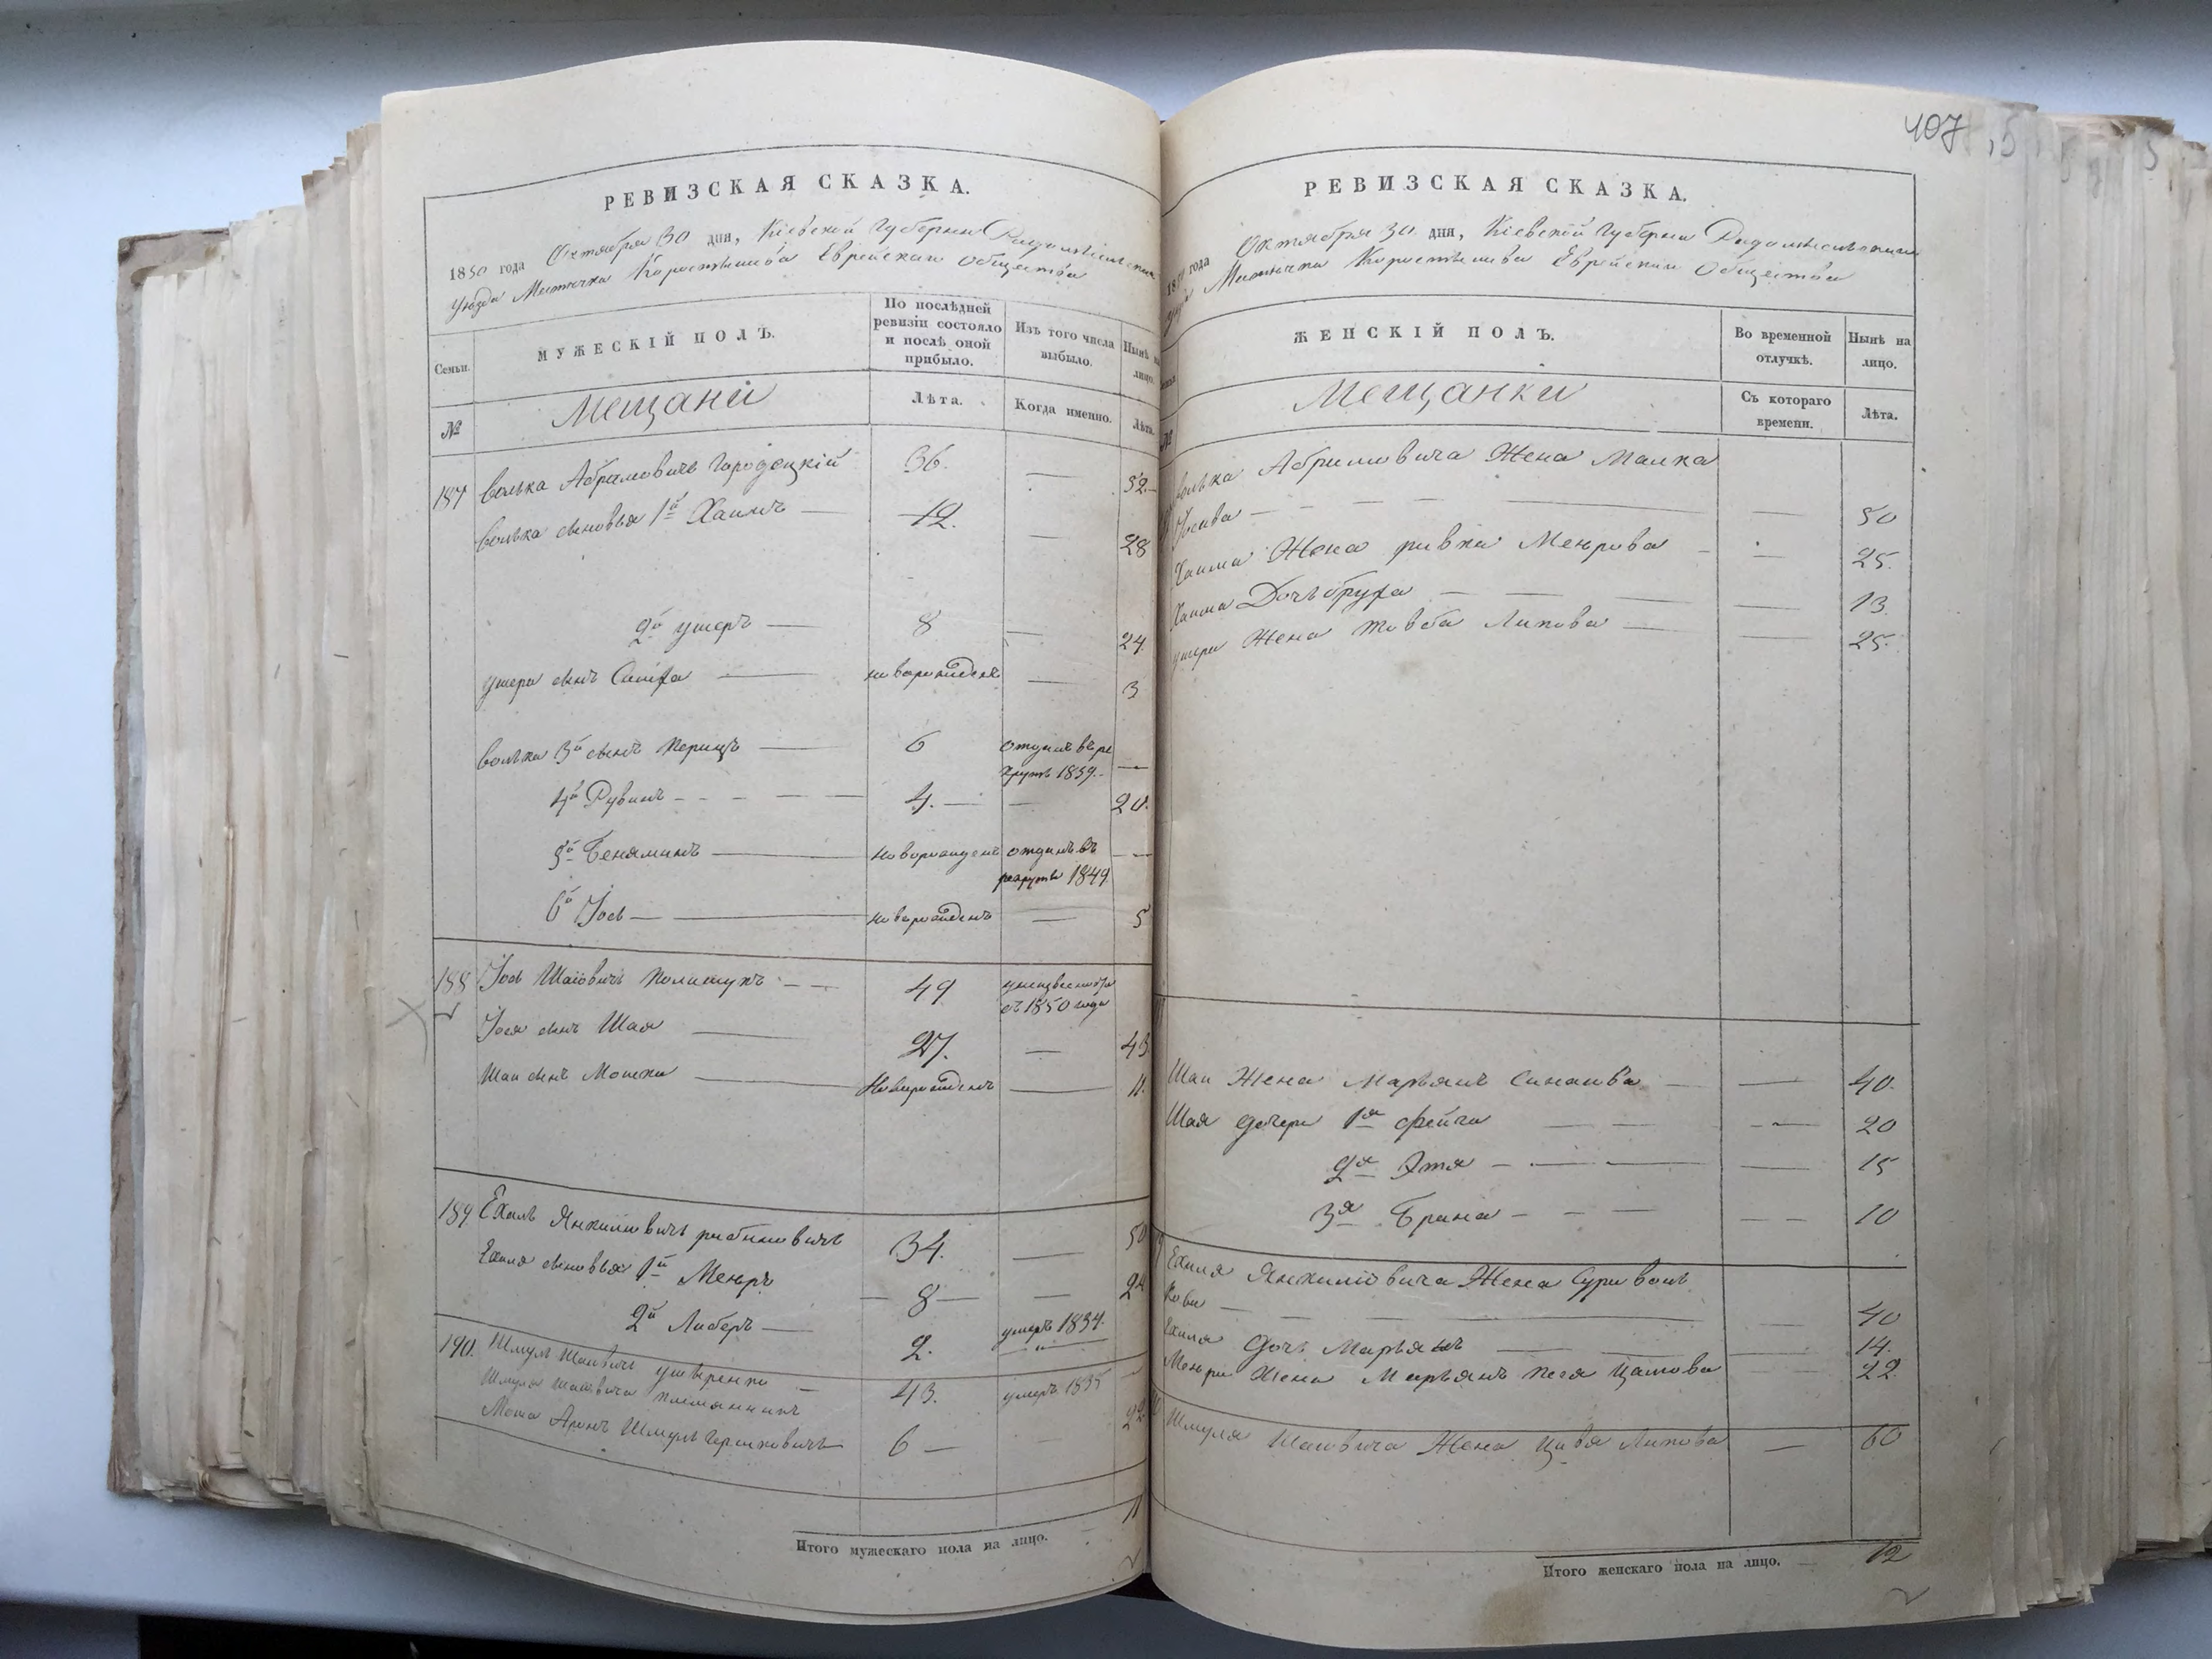 407
РЕВИЗСКАЯ СКАЗКА.
1850 года Октября 30 дня, Кіевской Губерніи Радомысльскаго
Уѣзда Мѣстечка Коростышева Еврейскаго Общества
Семьи.
МУЖЕСКІЙ ПОЛЪ.
По послѣдней ревизіи состояло и послѣ оной прибыло.
Изъ того числа выбыло.
Нынѣ на лицо.
№
Мещани
Лѣта.
Когда именно.
Лѣта.
187 Волька Абрамовичъ Городецкій 36. — 52.
Волька сыновья 1й Хаимъ — 12. — 28
2й Ушеръ — 8 — 24.
Ушера сынъ Симха — новорожденъ — 3
Волька 3й сынъ Перецъ — 6 отданъ въ ре
круты 1839. —
4й Рувинъ — 4. — — 20.
5й Беняминъ — новорожденъ отданъ въ —
рекруты 1849.
6й Іось — новорожденъ — 5
188 Іось Шаіовичъ Полищукъ — 49
съ 1850 года
Іося сынъ Шая — 27. — 43.
Шаи сынъ Мошко — Новорожденъ — 11.
189 Ехиль Янкилiовичъ Рабиновичъ 34. — 50
Ехиля сыновья 1й Меиръ — 8 — — 24
2й Либеръ — 2. умеръ 1834.
190. Шмуль Шаіовичъ — 43. умеръ 1835 —
Шмуля Шаіовича племянникъ
Мошка Аронъ Шмуль Гершковичъ 6 — — 22
11
Итого мужескаго пола на лицо.
РЕВИЗСКАЯ СКАЗКА.
1850 года Октября 30 дня, Кіевской Губерніи Радомысльскаго
Уѣзда Мѣстечка Коростышева Еврейскаго Общества
ЖЕНСКІЙ ПОЛЪ.
Во временной отлучкѣ.
Нынѣ на лицо.
№
Мещанки
Съ котораго времени.
Лѣта.
Волька Абрамовича Жена Малка
— — 50
Хаима Жена Ривка Меирова — — 25.
Хаима Дочь Бруха — — 13.
Ушера Жена Товба Липова — — 25.
Шаи Жена Марьямъ Синаіова — — 40.
Шая дочери 1я Фейга — — 20
2я Этя — — 15
3я Брана — — 10
Ехиля Янкилiовича Жена Сура Воль
кова — — 40
Ехиля дочь Марьямъ — — 14.
Меира Жена Марьямъ Песя — 22.
Шмуля Шаіовича Жена Цивья Липова — 60
12
Итого женскаго пола на лицо.